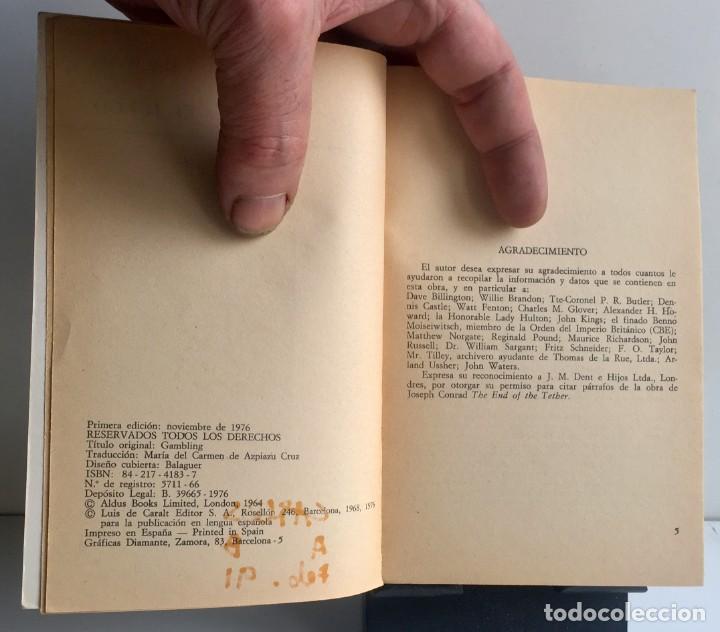 Primera edición: noviembre de 1976
RESERVADOS TODOS LOS DERECHOS
Título original: Gambling
Traducción: María del Carmen de Azpiazu Cruz
Diseño cubierta: Balaguer
ISBN: 84 - 217 - 4183 - 7
N.º de registro: 5711 - 66
Depósito Legal: B. 39665 - 1976
© Aldus Books Limited, London, 1964
© Luis de Caralt Editor S. A., Rosellón 246, Barcelona, 1968, 1976
para la publicación en lengua española
Impreso en España — Printed in Spain
Gráficas Diamante, Zamora, 83, Barcelona - 5
AGRADECIMIENTO
El autor desea expresar su agradecimiento a todos cuantos le
ayudaron a recopilar la información y datos que se contienen
en esta obra, y en particular a:
Dave Billington; Willie Brandon; Tte-Coronel P. R. Butler; Den-
nis Castle; Watt Fenton; Charles M. Glover; Alexander H. Ho-
ward; la Honorable Lady Hulton; John Kings; el finado Benno
Moiseiwitsch, miembro de la Orden del Imperio Británico (CBE);
Matthew Norgate; Reginald Pound; Maurice Richardson; John
Russell; Dr. William Sargant; Fritz Schneider; F. O. Taylor;
Mr. Tilley, archivero ayudante de Thomas de la Rue, Ltda.; Ar-
land Ussher; John Waters.
Expresa su reconocimiento a J. M. Dent e Hijos Ltda., Lon-
dres, por otorgar su permiso para citar párrafos de la obra de
Joseph Conrad The End of the Tether.
5
todocoleccion